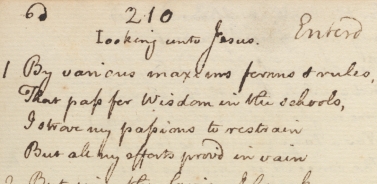 6d 210
Looking unto Jesus. Enterd
1 By various maxims forms & rules,
That pass for Wisdom in the schools,
I strove my passions to restrain
But all my efforts prov'd in vain
2 But